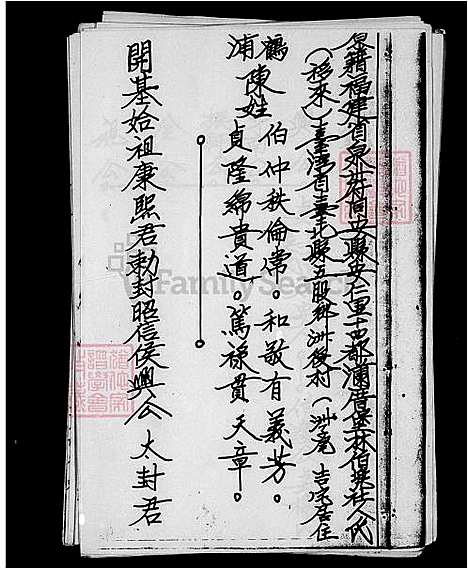 原籍福建省泉州府同安縣安仁里十四都灌口堡林伯塽社人氏
(移來)臺灣省臺北縣五股鄉洲後村(洲尾 吉宅居住
鶴浦陳姓 伯仲秩倫常。和敬有義芳。
貞隆綿貴道。篤祿貫天章。
開基始祖康熙君勅封昭信侯興公太封君
FamilySearch